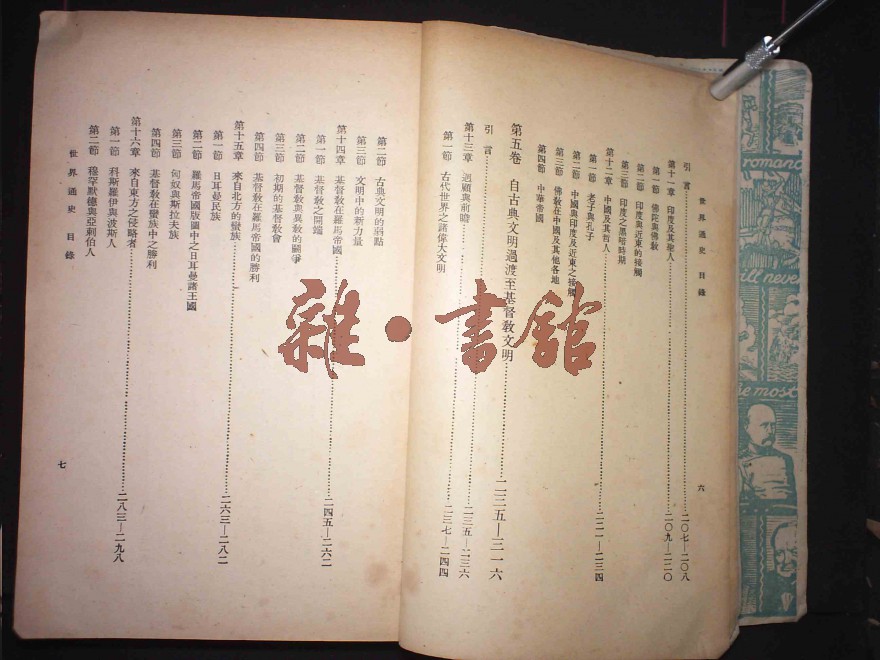 世界通史 目錄
六
引言……二〇七—二〇八
第十一章 印度及其聖人……二〇九—二二〇
第一節 佛陀與佛教
第二節 印度與近東的接觸
第三節 印度之黑暗時期
第十二章 中國及其哲人……二二一—二三四
第一節 老子與孔子
第二節 中國與印度及近東之接觸
第三節 佛教在中國及其他各地
第四節 中華帝國
第五卷 自古典文明過渡至基督教文明……二三五—三一六
引言……二三五—二三六
第十三章 迴顧與前瞻……二三七—二四四
第一節 古代世界之諸偉大文明
第二節 古典文明的弱點
第三節 文明中的新力量
第十四章 基督教在羅馬帝國……二四五—二六二
第一節 基督教之開端
第二節 基督教與異教的鬭爭
第三節 初期的基督教會
第四節 基督教在羅馬帝國的勝利
第十五章 來自北方的蠻族……二六三—二八二
第一節 日耳曼民族
第二節 羅馬帝國版圖中之日耳曼諸王國
第三節 匈奴與斯拉夫族
第四節 基督教在蠻族中之勝利
第十六章 來自東方之侵略者……二八三—二九八
第一節 科斯羅伊與波斯人
第二節 穆罕默德與亞剌伯人
世界通史 目錄
七
雜·書館
romanc
ill neve
e most